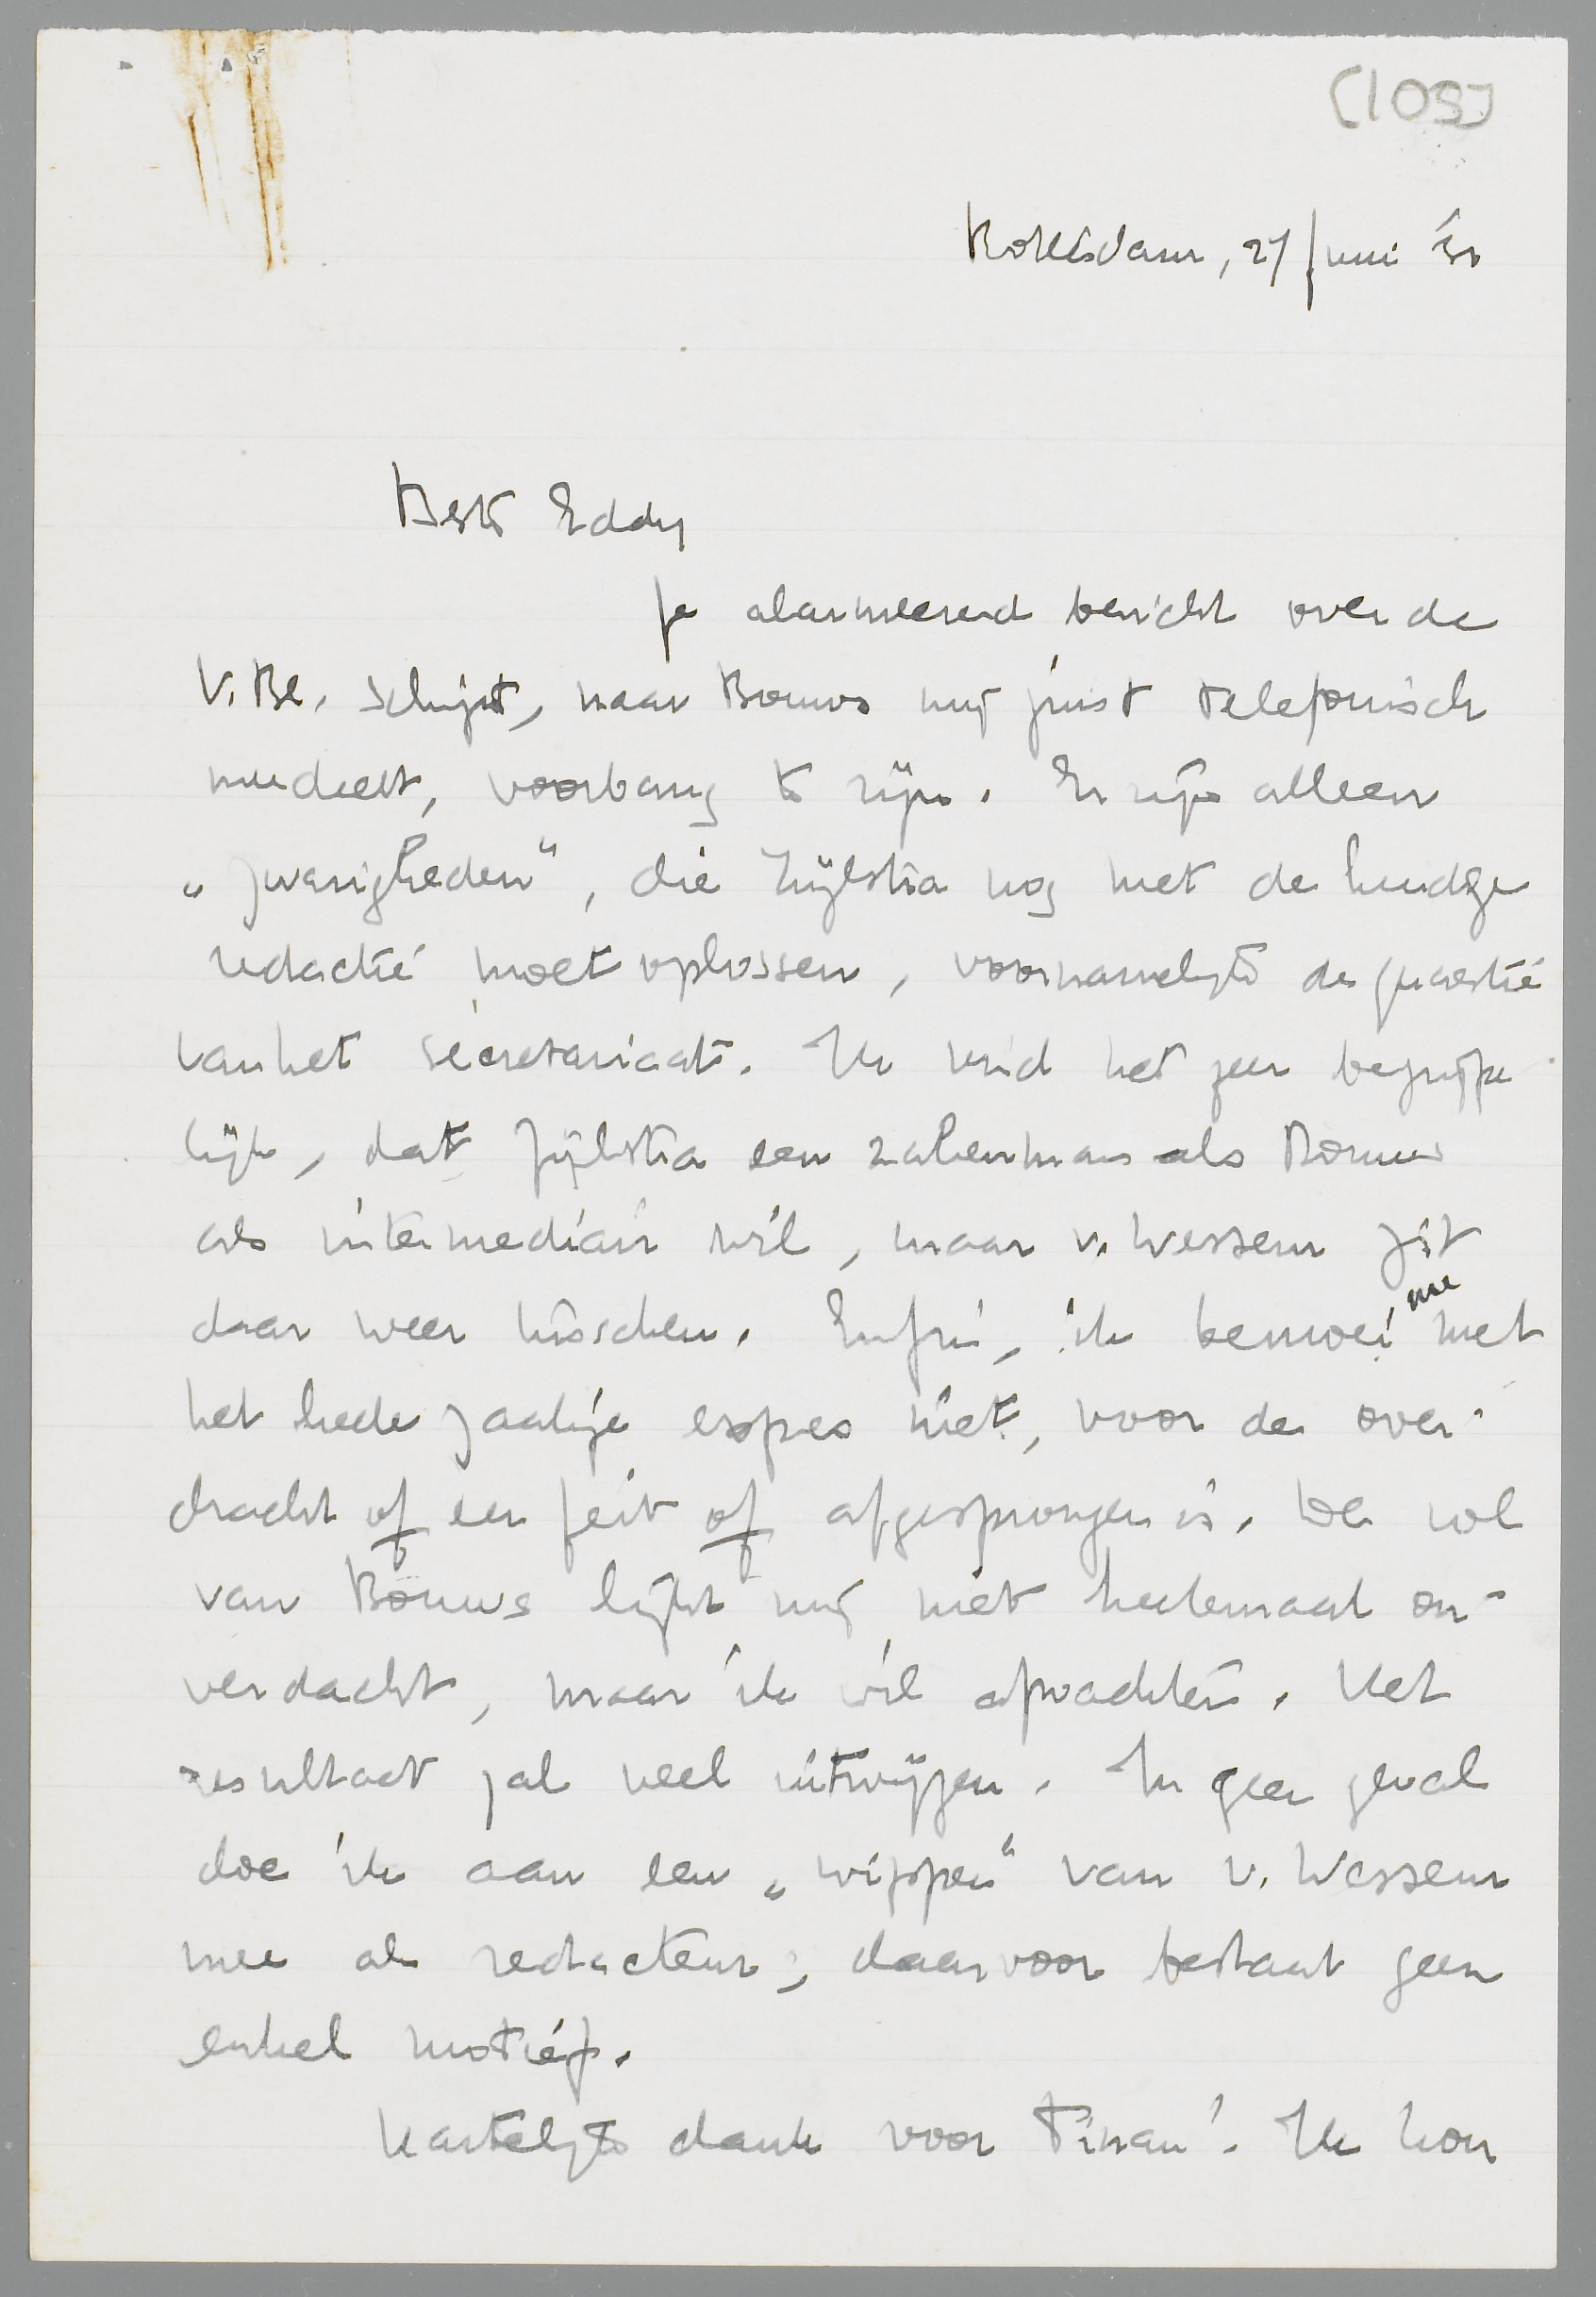 [109]
Rotterdam, 27 Juni '31
Beste Eddy
Je alarmeerend bericht over de
V.Bl. schijnt, naar Bouws mij juist telefonisch
meedeelt, voorbarig te zijn. Er zijn alleen
„zwarigheden", die Zijlstra nog met de huidige
redactie moet oplossen, voornamelijk de quaestie
van het secretariaat. Ik vind het zeer begrijpe
lijk, dat Zijlstra een zakenman als Bouws
als intermediair wil, maar v. Wessem zit
daar weer tusschen. Enfin, ik bemoei me met
het heele zaakje expres niet, voor de over-
dracht of een feit of afgesprongen is. De rol
van Bouws lijkt mij niet heelemaal on-
verdacht, maar ik wil afwachten. Het
resultaat zal veel uitwijzen. In geen geval
doe ik aan een „wippen" van v. Wessem
mee als redacteur; daarvoor bestaat geen
enkel motief.
Hartelijk dank voor Tinan! Ik kon